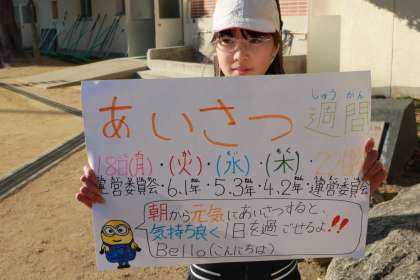 しゅう かん
あいさつ 週間
18日(月)・(火)・(水)・(木)・
運営委員会・6.1年・5.3年・4.2年・運営委員会
朝から元気にあいさつすると、
気持ち良く1日を過ごせるよ!!
Bello(こんにちは)